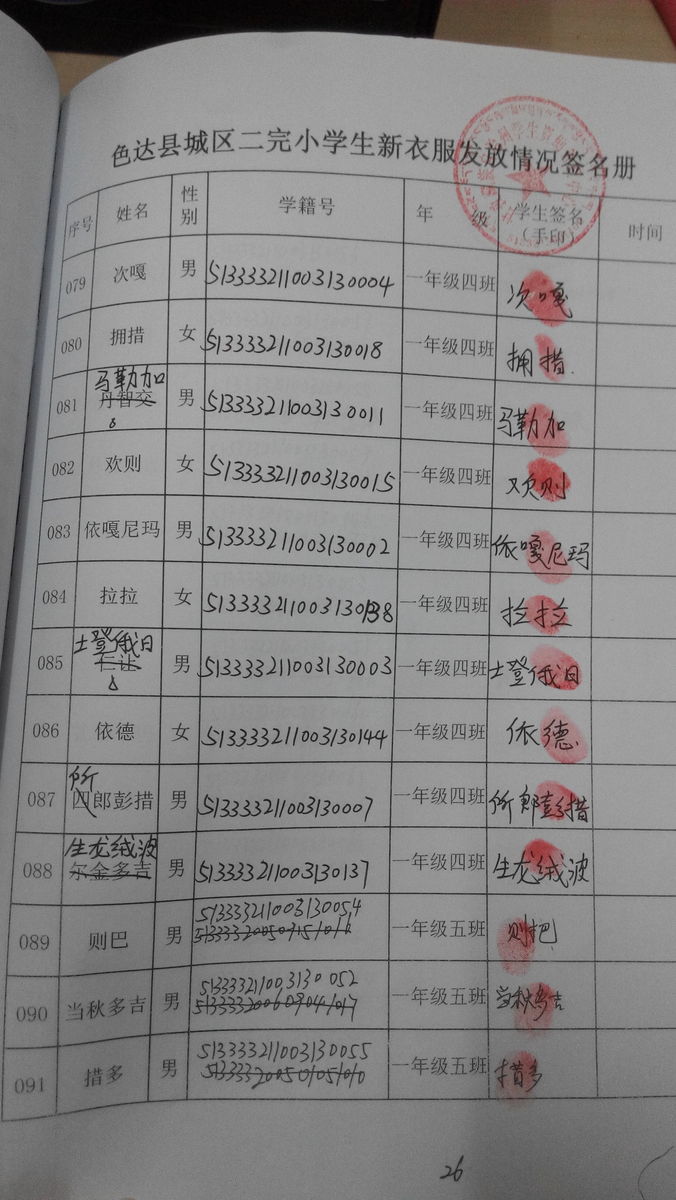 色达县城区二完小学生新衣服发放情况签名册
序号 姓名 性别 学籍号 年 级 学生签名（手印） 时间
079 次嘎 男 513333211003130004 一年级四班 次嘎
080 拥措 女 513333211003130018 一年级四班 拥措.
081 马勒加 丹智交 男 513333211003130011 一年级四班 马勒加
082 欢则 女 513333211003130015 一年级四班 欢则
083 依嘎尼玛 男 513333211003130002 一年级四班 依嘎尼玛
084 拉拉 女 513333211003130138 一年级四班 拉拉
085 土登俄日 仁让 男 513333211003130003 一年级四班 土登俄日
086 依德 女 513333211003130144 一年级四班 依德
087 所 四郎彭措 男 513333211003130007 一年级四班 所郎彭措
088 生龙绒波 尔金多吉 男 513333211003130137 一年级四班 生龙绒波
089 则巴 男 513333211003130054 一年级五班 则把
090 当秋多吉 男 513333211003130052 一年级五班 当秋多吉
091 措多 男 513333211003130055 一年级五班 措多
26